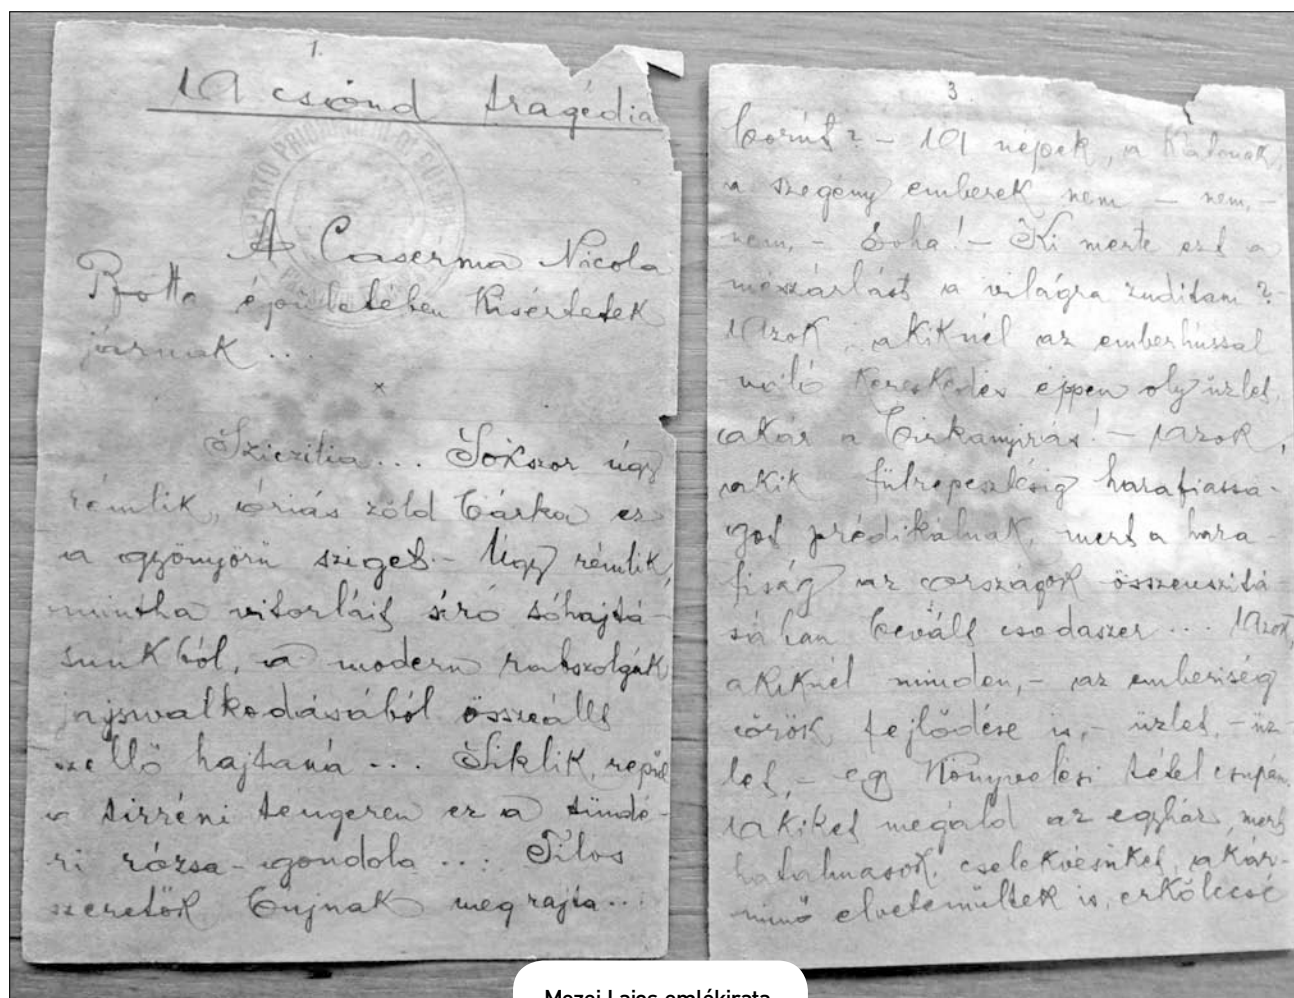 1.
A csönd tragédia
A Caserma Nicola
Botta épületében kisértetek
járnak ...
x
Sziczilia ... Sokszor úgy
rémlik, óriás zöld bárka ez
a gyönyörü sziget. - Úgy rémlik,
mintha vitorláit síró sóhajtá-
sunkból, a modern rabszolgák
jajswalkodásából összeállt
szellő hajtaná ... Siklik, repül
a tirréni tengeren ez a tündé-
ri rózsa-gondola ... Tilos
szeretők bujnak meg rajta ...
3
borút? - A népek, a katonák,
a szegény emberek nem - nem, -
nem, - Soha! - Ki merte ezt a
mészárlást a világra zuditani?
Azok, akiknél az emberhússal
való kereskedés éppen oly üzlet,
akár a birkanyirás! - Azok,
akik fülrepesztésig hazafiassá-
got prédikálnak, mert a haza-
fiság az országok összeuszitá-
sában bevált csodaszer ... Azok,
akiknél minden, - az emberiség
örök fejlődése is, - üzlet, - üz-
let, - egy könyvelési tétel csupán.
Akiket megáld az egyház, mert
hatalmasok, cselekvésüket, akár-
minő elvetemültek is, erkölcssé
Mezei Lajos emlékirata